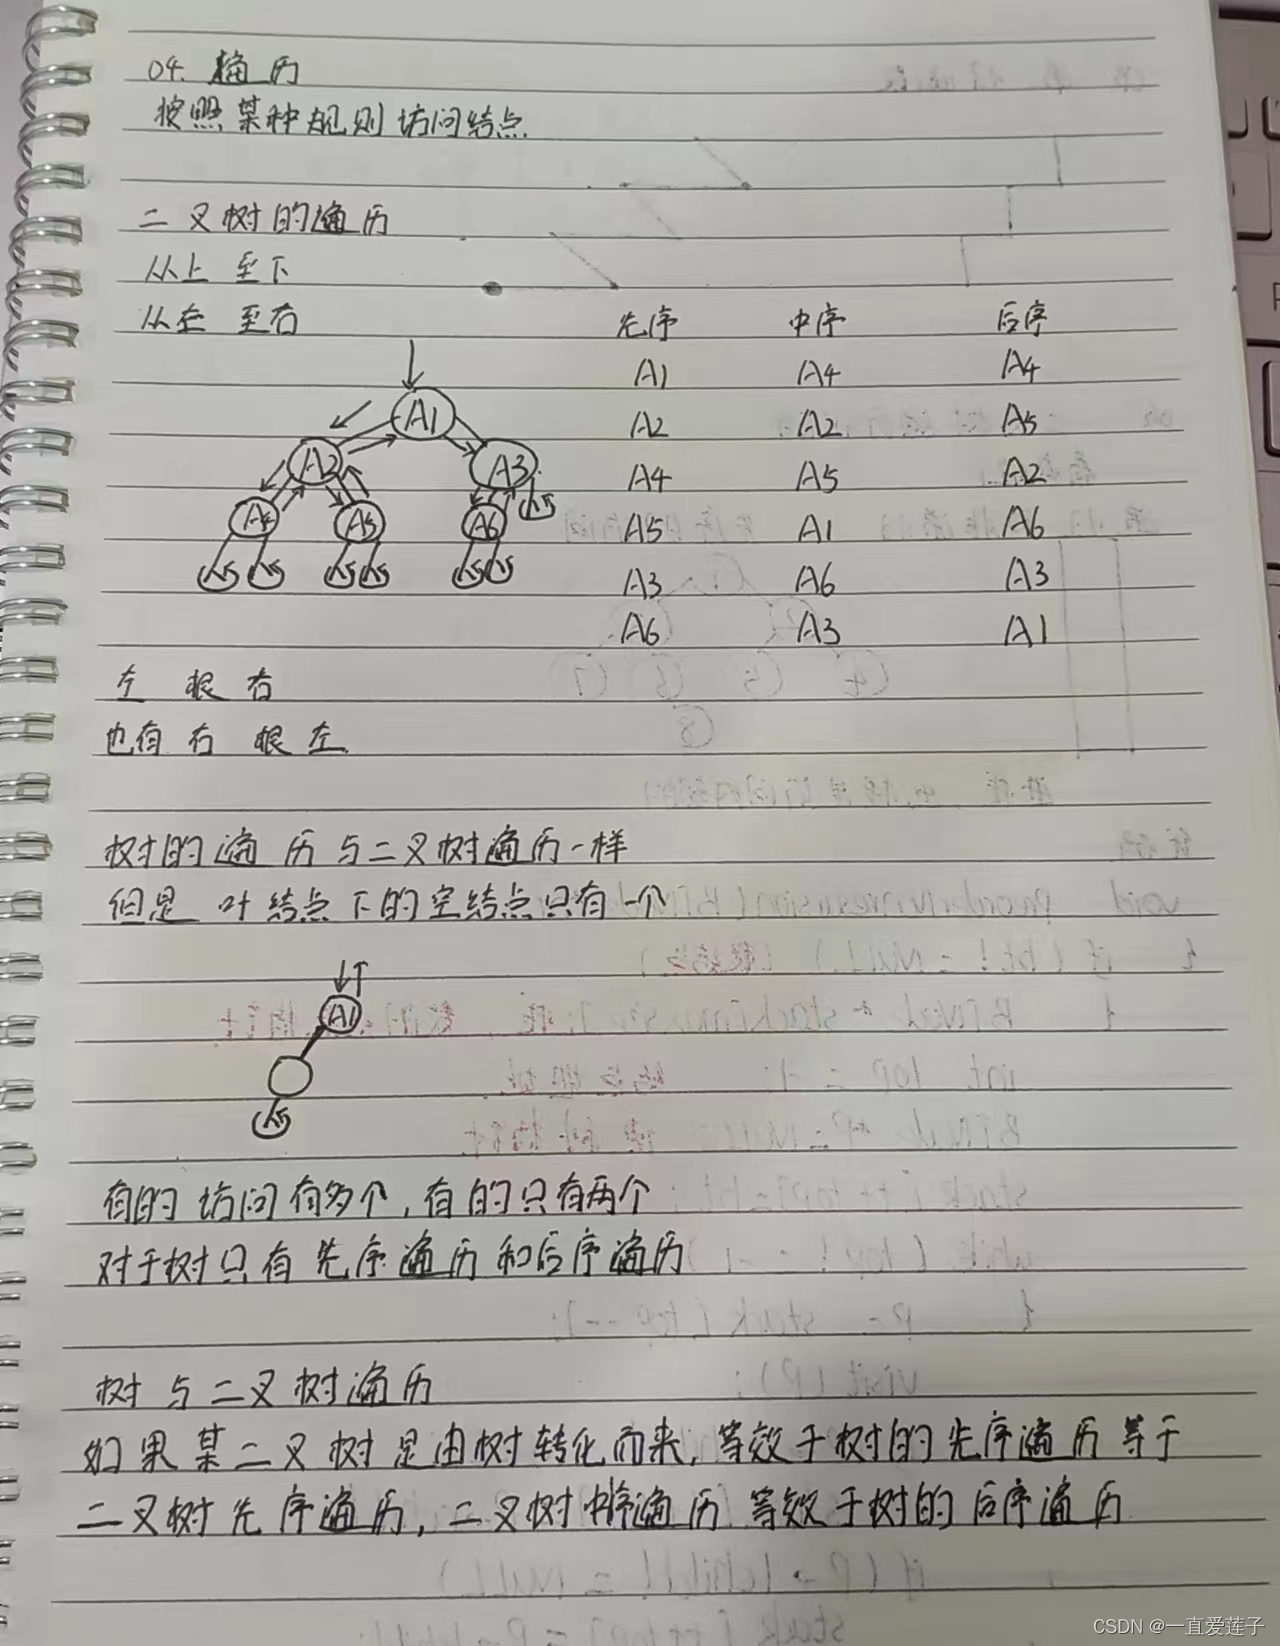 04. 遍历
按照某种规则访问结点
二叉树的遍历
从上至下
从左至右 先序 中序 后序
A1 A4 A4
A1
A2 A2 A5
A2 A3
A4 A5 A2
A4 A5 A6
A5 A1 A6
A3 A6 A3
A6 A3 A1
左 根 右
也有 右 根 左
树的遍历与二叉树遍历一样
但是 叶结点下的空结点只有一个
A1
有的访问有多个,有的只有两个
对于树只有先序遍历和后序遍历
树与二叉树遍历
如果某二叉树是由树转化而来,等效于树的先序遍历等于
二叉树先序遍历,二叉树中序遍历等效于树的后序遍历
CSDN @一直爱莲子